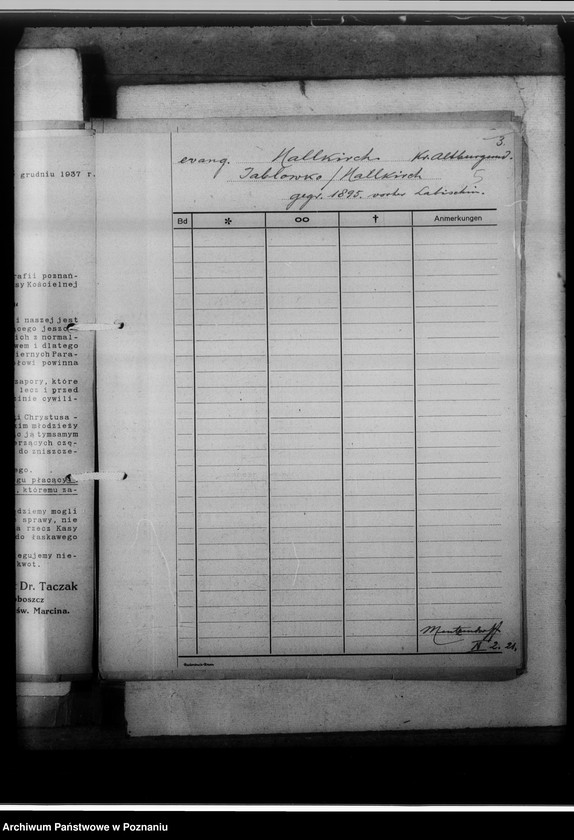 grudniu 1937 r.
rafii poznań-
sy Kościelnej
i naszej jest
ącego jeszcze
ich z normal-
wem i dlatego
iernych Para-
łowi powinna
zapory, które
lecz i przed
śnie cywili-
i Chrystusa -
kim młodzieży
ąc ją tymsamym
erzących czę-
do zniszcze-
ego.
gu płacący
, któremu za-
ędziemy mogli
sprawy, nie
a rzecz Kasy
do łaskawego
egujemy nie-
kwot.
Dr. Taczak
oboszcz
św. Marcina.
3.
evang. Hallkirch Kr. Altburgund.
Jabłowko / Hallkirch 5
gegr. 1895. vorher Labischin.
Bd * ∞ † Anmerkungen
IV 2. 21.
Archiwum Państwowe w Poznaniu